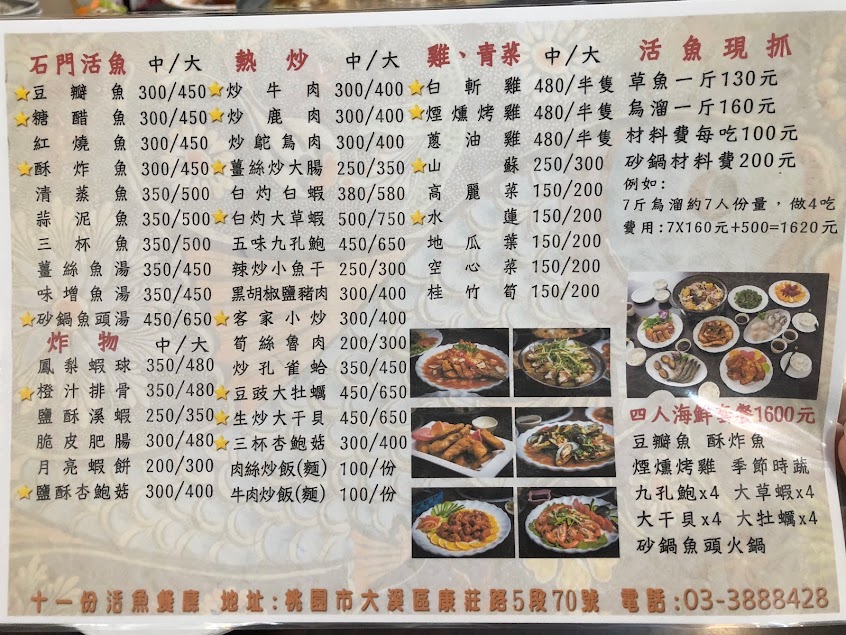 石門活魚 中/大
豆瓣魚 300/450
糖醋魚 300/450
紅燒魚 300/450
酥炸魚 300/450
清蒸魚 350/500
蒜泥魚 350/500
三杯魚 350/500
薑絲魚湯 350/450
味增魚湯 350/450
砂鍋魚頭湯 450/650
炸物 中/大
鳳梨蝦球 350/480
橙汁排骨 350/480
鹽酥溪蝦 250/350
脆皮肥腸 300/480
月亮蝦餅 200/300
鹽酥杏鮑菇 300/400
熱炒 中/大
炒牛肉 300/400
炒鹿肉 300/400
炒鴕鳥肉 300/400
薑絲炒大腸 250/350
白灼白蝦 380/580
白灼大草蝦 500/750
五味九孔鮑 450/650
辣炒小魚干 250/300
黑胡椒鹽豬肉 300/400
客家小炒 300/400
筍絲魯肉 200/300
炒孔雀蛤 350/450
豆豉大牡蠣 450/650
生炒大干貝 450/650
三杯杏鮑菇 300/400
肉絲炒飯(麵) 100/份
牛肉炒飯(麵) 100/份
雞、青菜 中/大
白斬雞 480/半隻
煙燻烤雞 480/半隻
蔥油雞 480/半隻
山蘇 250/300
高麗菜 150/200
水蓮 150/200
地瓜葉 150/200
空心菜 150/200
桂竹筍 150/200
活魚現抓
草魚一斤130元
烏溜一斤160元
材料費每吃100元
砂鍋材料費200元
例如:
7斤烏溜約7人份量，做4吃
費用:7X160元+500=1620元
四人海鮮套餐1600元
豆瓣魚 酥炸魚
煙燻烤雞 季節時蔬
九孔鮑x4 大草蝦x4
大干貝x4 大牡蠣x4
砂鍋魚頭火鍋
十一份活魚餐廳 地址:桃園市大溪區康莊路5段70號 電話:03-3888428